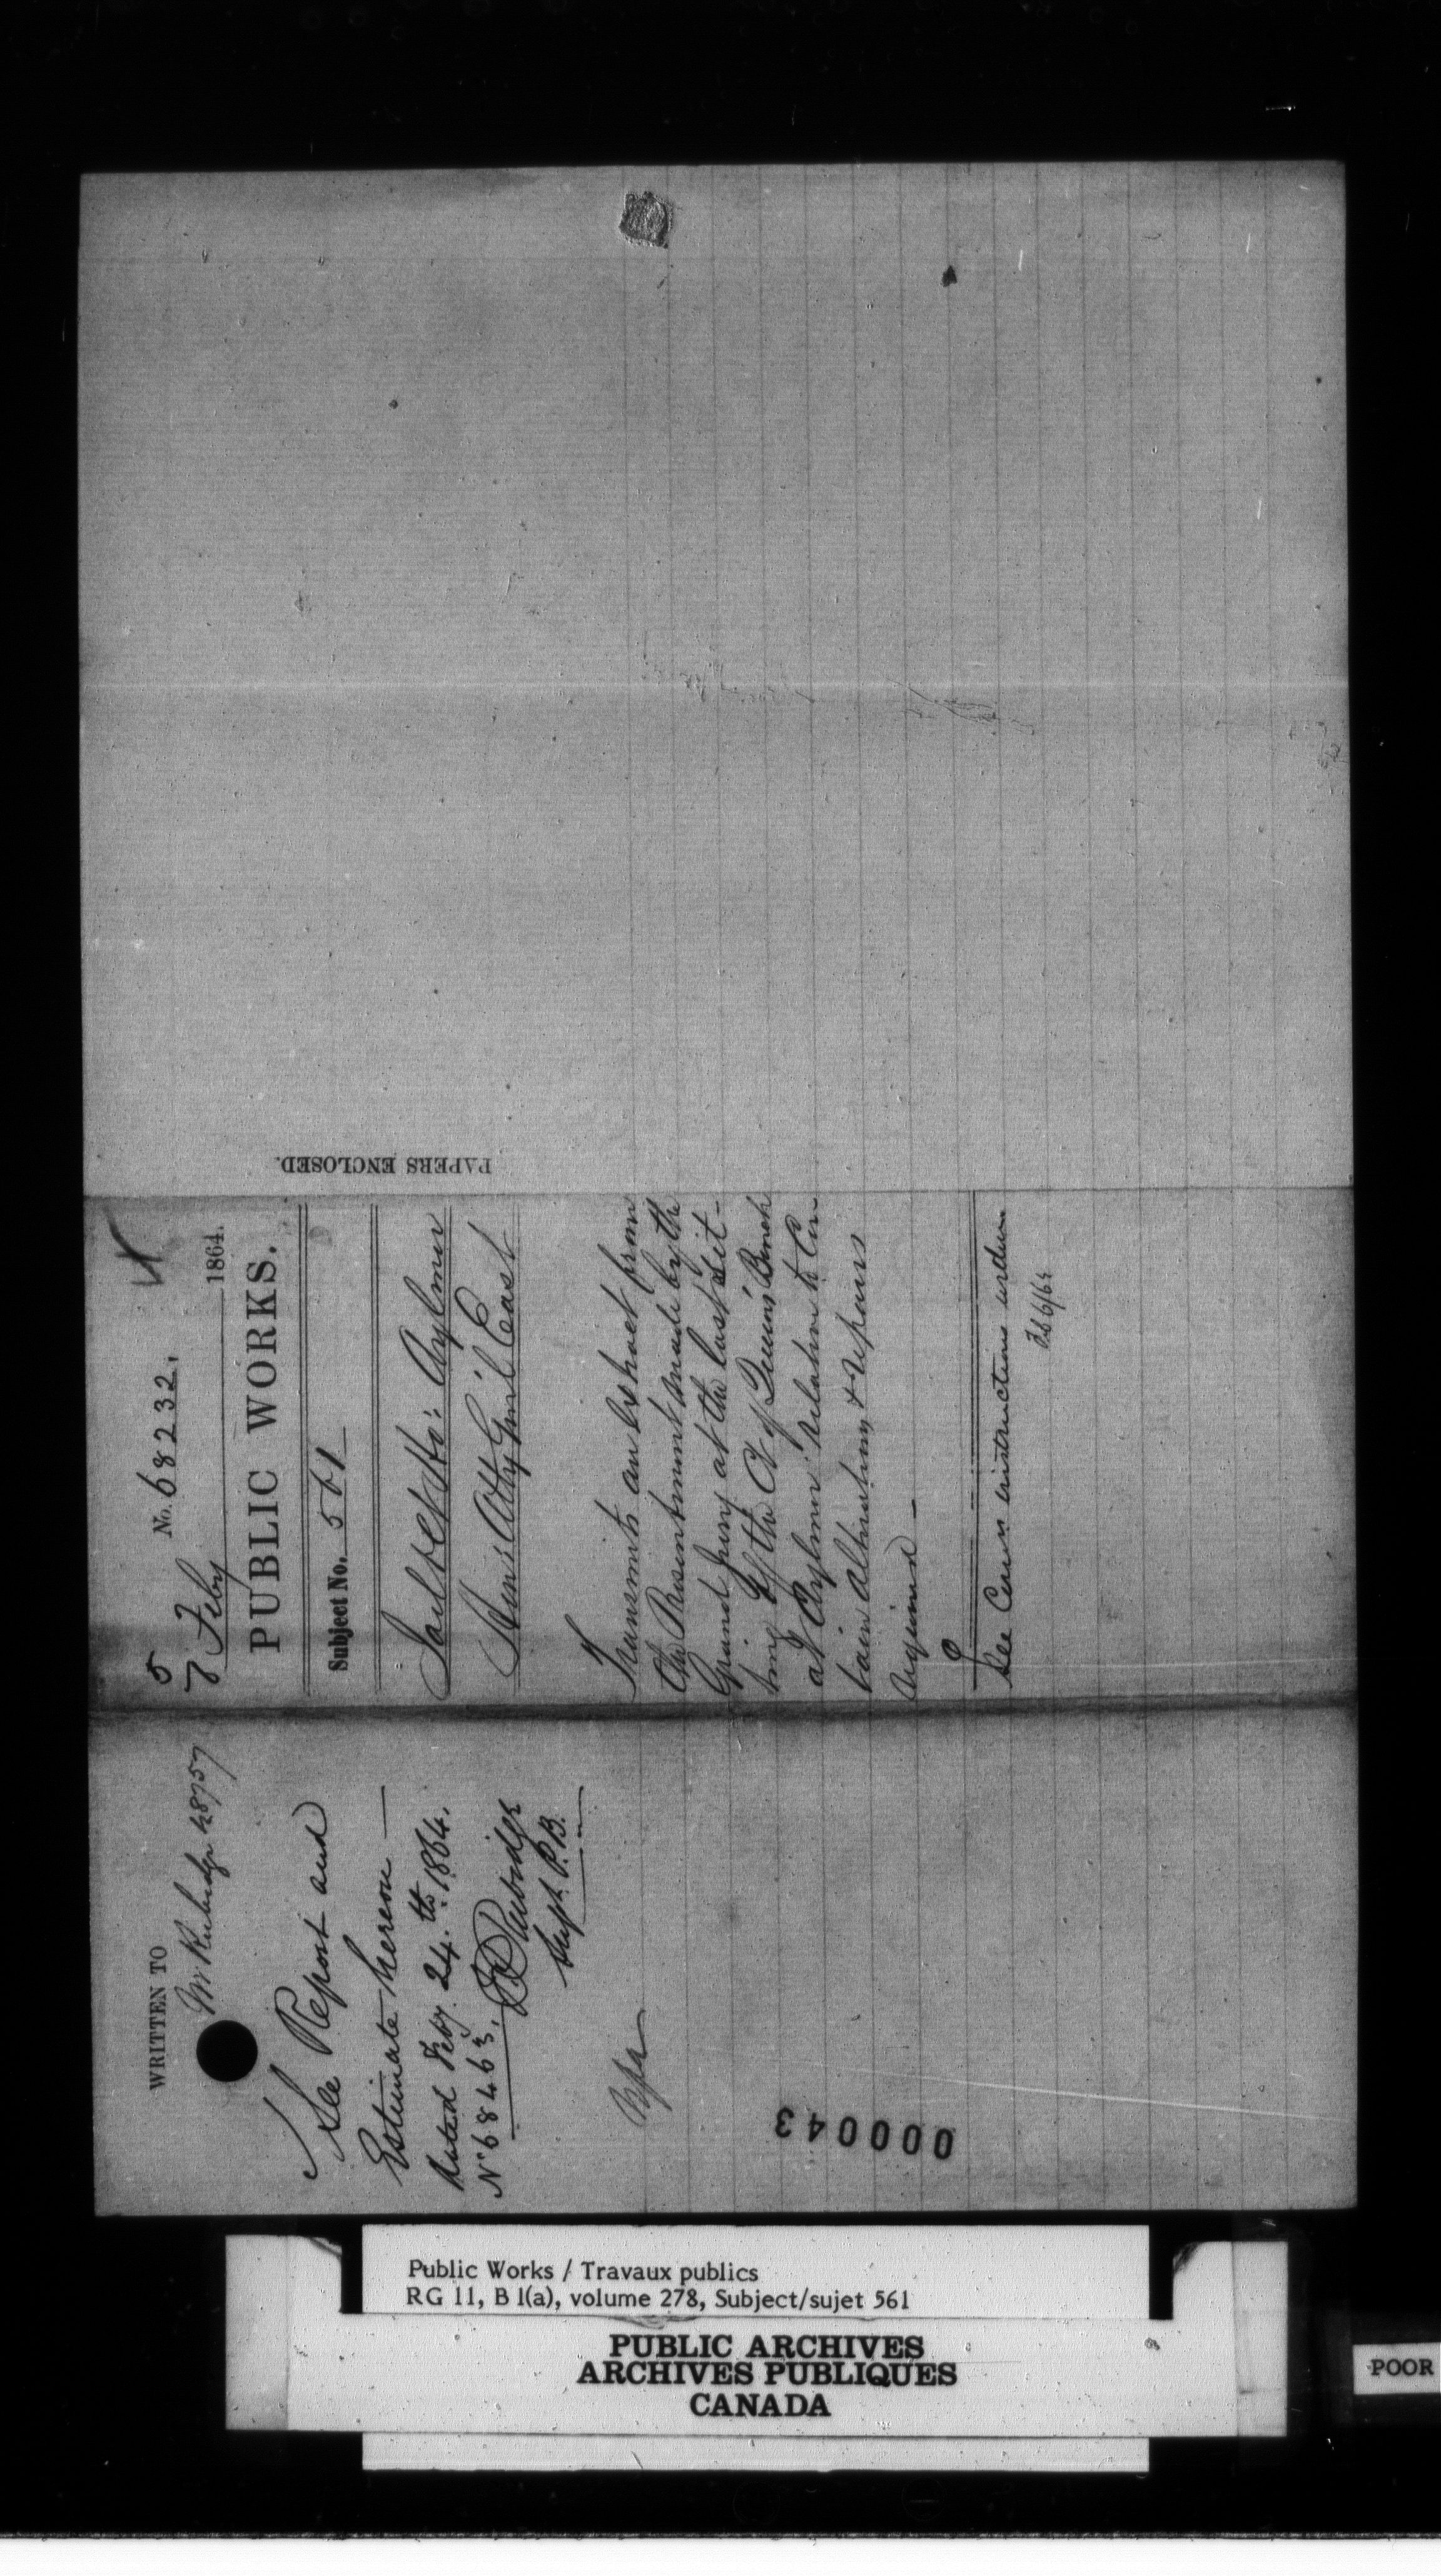 WRITTEN TO
Mr Rubidge 48757
See Report and
Estimate hereon —
dated Feby. 24.th 1864.
No 68463.
F P Rubidge
Supt. P.B.
000043
5
No. 68232.
7 Feby 1864.
PUBLIC WORKS.
Subject No. 561
Jail & Ct Ho: Aylmer
Hon: Atty Genl East
Transmits an extract from
the Presentment made by the
Grand Jury at the last Sit-
ting of the Ct of Queen's Bench
at Aylmer relative to Cer-
tain alterations & repairs
required —
See instructions
Fb 6/64
PAPERS ENCLOSED.
Public Works / Travaux publics
RG 11, B 1(a), volume 278, Subject/sujet 561
PUBLIC ARCHIVES
ARCHIVES PUBLIQUES
CANADA
POOR